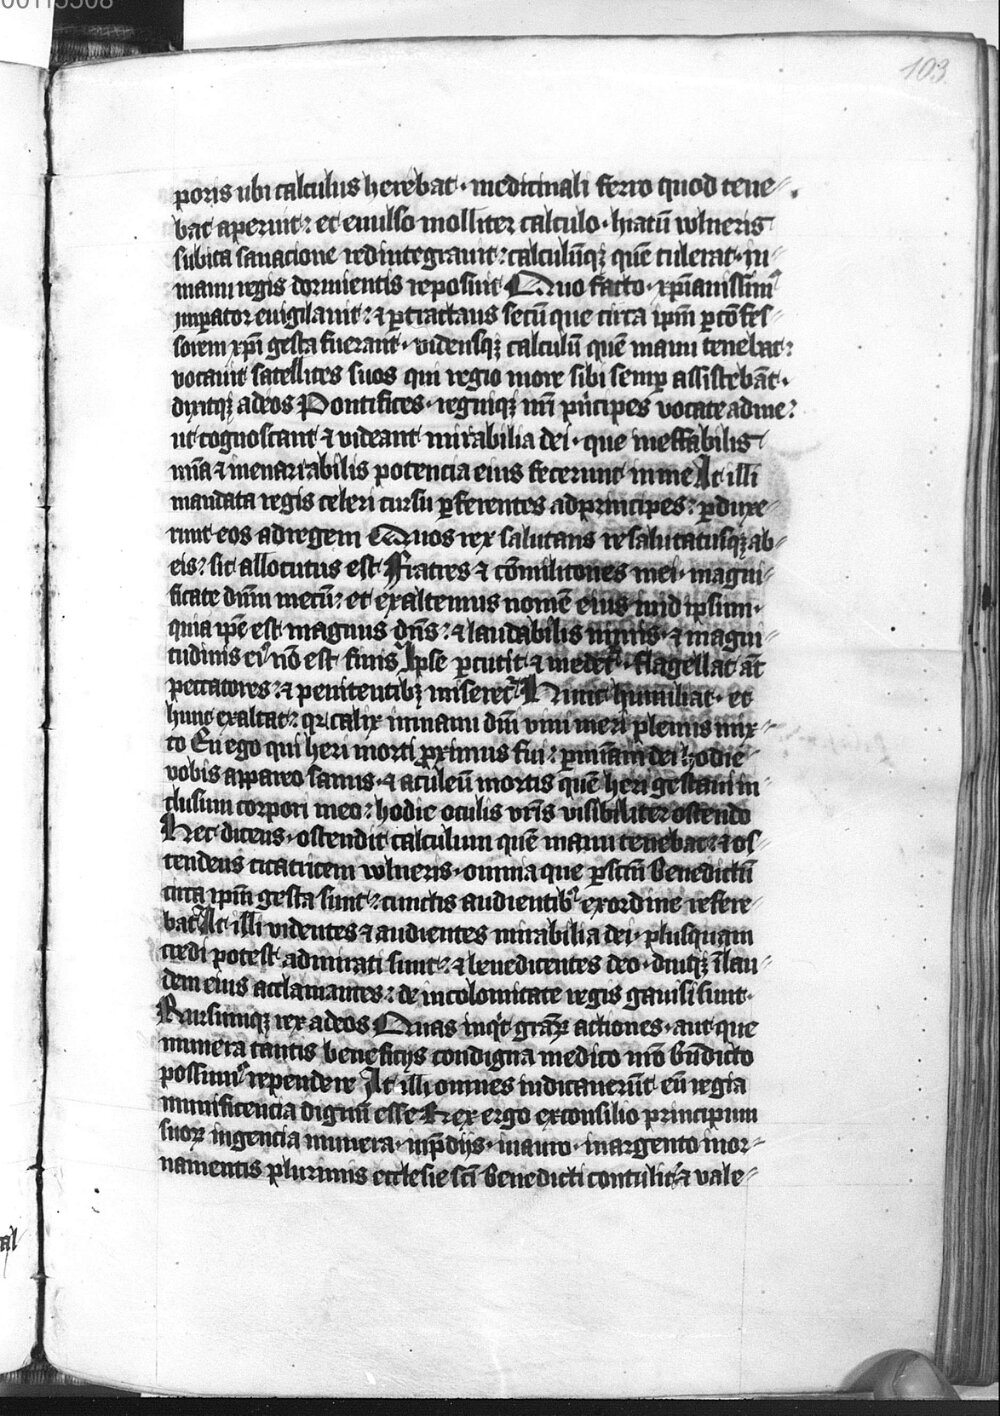 103
poris ubi calculus herebat · medicinali ferro quod tene⸗
bat aperuit: et euulso molliter calculo · hiatū wlneris
subita sanacione redintegrauit: calculūqꝫ quē tulerat · in⸗
manu regis dormientis reposuit Quo facto · xp̄ianissimꝰ
imꝑator euigilauit: ⁊ ꝑtractans secū que circa ip̄m ꝑ cōfes⸗
sorem xp̄i gesta fuerant · vidensqꝫ calculū quē manu tenebat:
vocauit satellites suos qui regio more sibi semꝑ assistebāt ·
dixitqꝫ ad eos Pontifices · regniqꝫ mī pͥncipes vocate ad me:
ut cognoscant ⁊ videant mirabilia dei · que ineffabilis
mīa ⁊ inenarrabilis potencia eius fecerunt in me At illi
mandata regis celeri cursu ꝑferentes ad principes: ꝑduxe⸗
runt eos ad regem Quos rex salutans resalutatusqꝫ ab⸗
eis: sic allocutus est Fratres ⁊ cōmilitones mei · magni⸗
ficate dn̄m mecū: et exaltemus nomē eius in id ipsum ·
quia ip̄e est magnus dn̄s: ⁊ laudabilis nimis · ⁊ magni⸗
tudinis eiꝰ nō est finis Ipse ꝑcutit ⁊ medetᷣ · flagellat aūt
peccatores: ⁊ penitentibꝫ miseretᷣ Hunc humiliat · et
hunc exaltat: qꝛ calix in manu dn̄i vini meri plenus mix⸗
to En ego qui heri morti ꝓximus fui: ꝑ mīam dei hodie
vobis appareo sanus · ⁊ aculeū mortis quē heri gestaui in
clusum corpori meo: hodie oculis vr̄is visibiliter ostendo
Hec dicens · ostendit calculum quē manu tenebat: ⁊ os⸗
tendens cicatricem wlneris · omnia que ꝑ sct̄m Benedictū
circa ip̄m gesta sunt: cunctis audientibꝰ ex ordine refere⸗
bat At illi videntes ⁊ audientes mirabilia dei · plusquam
credi potest admirati sunt: ⁊ benedicentes deo · diuqꝫ ī lau⸗
dem eius acclamantes: de incolomitate regis gauisi sunt ·
Rursumqꝫ rex ad eos Quas inqͥt gr̄aꝝ actiones · aut que
munera tantis beneficijs condigna medico nr̄o bn̄dicto
possumꝰ rependere At illi omnes iudicauerūt eū regia
munificencia dignū esse Rex ergo ex consilio principum
suoꝝ ingencia munera · in p̄dijs · in auro · in argento in or⸗
namentis plurimis ecclesie sc̄i Benedicti contulit: ⁊ vale⸗